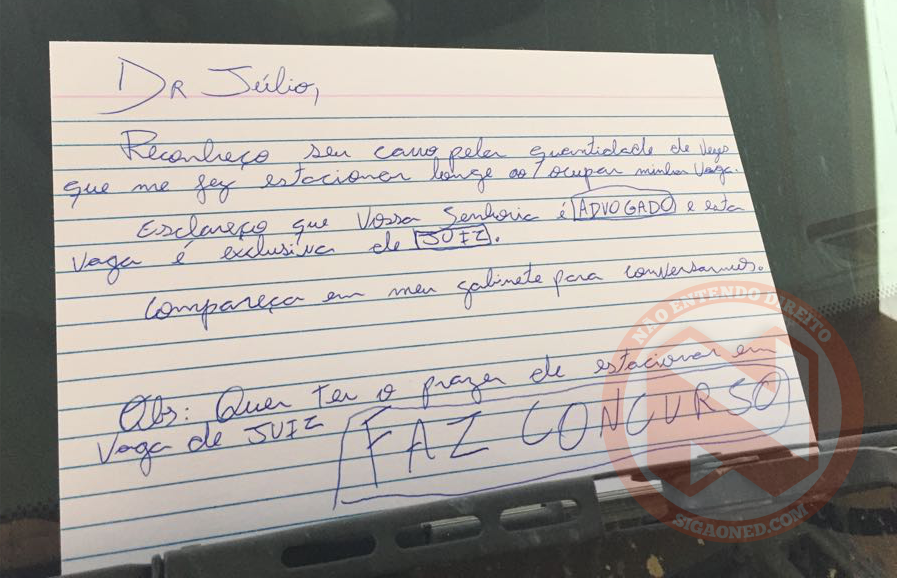 Dr Júlio,
Reconheço seu carro pela quantidade de vezes
que me fez estacionar longe ao ocupar minha vaga.
Esclareço que Vossa Senhoria é ADVOGADO e esta
vaga é exclusiva de JUIZ.
Compareça em meu gabinete para conversarmos.
Obs: Quer ter o prazer de estacionar em
vaga de JUIZ FAZ CONCURSO
NÃO ENTENDO DIREITO
SIGAONED.COM